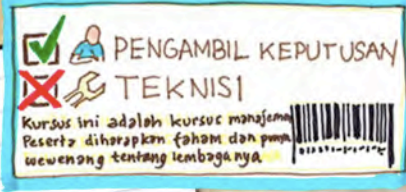 PENGAMBIL KEPUTUSAN
TEKNISI
Kursus ini adalah kursus manajemen
Peserta diharapkan faham dan punya
wewenang tentang lembaganya.